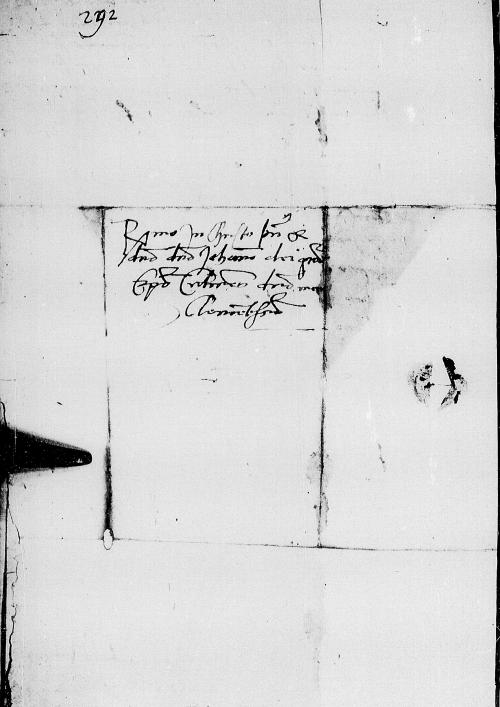 292
R[mo] In Christo pri &
dno dno Johanni dei gra
Epo Culmen dno meo
Clementissi